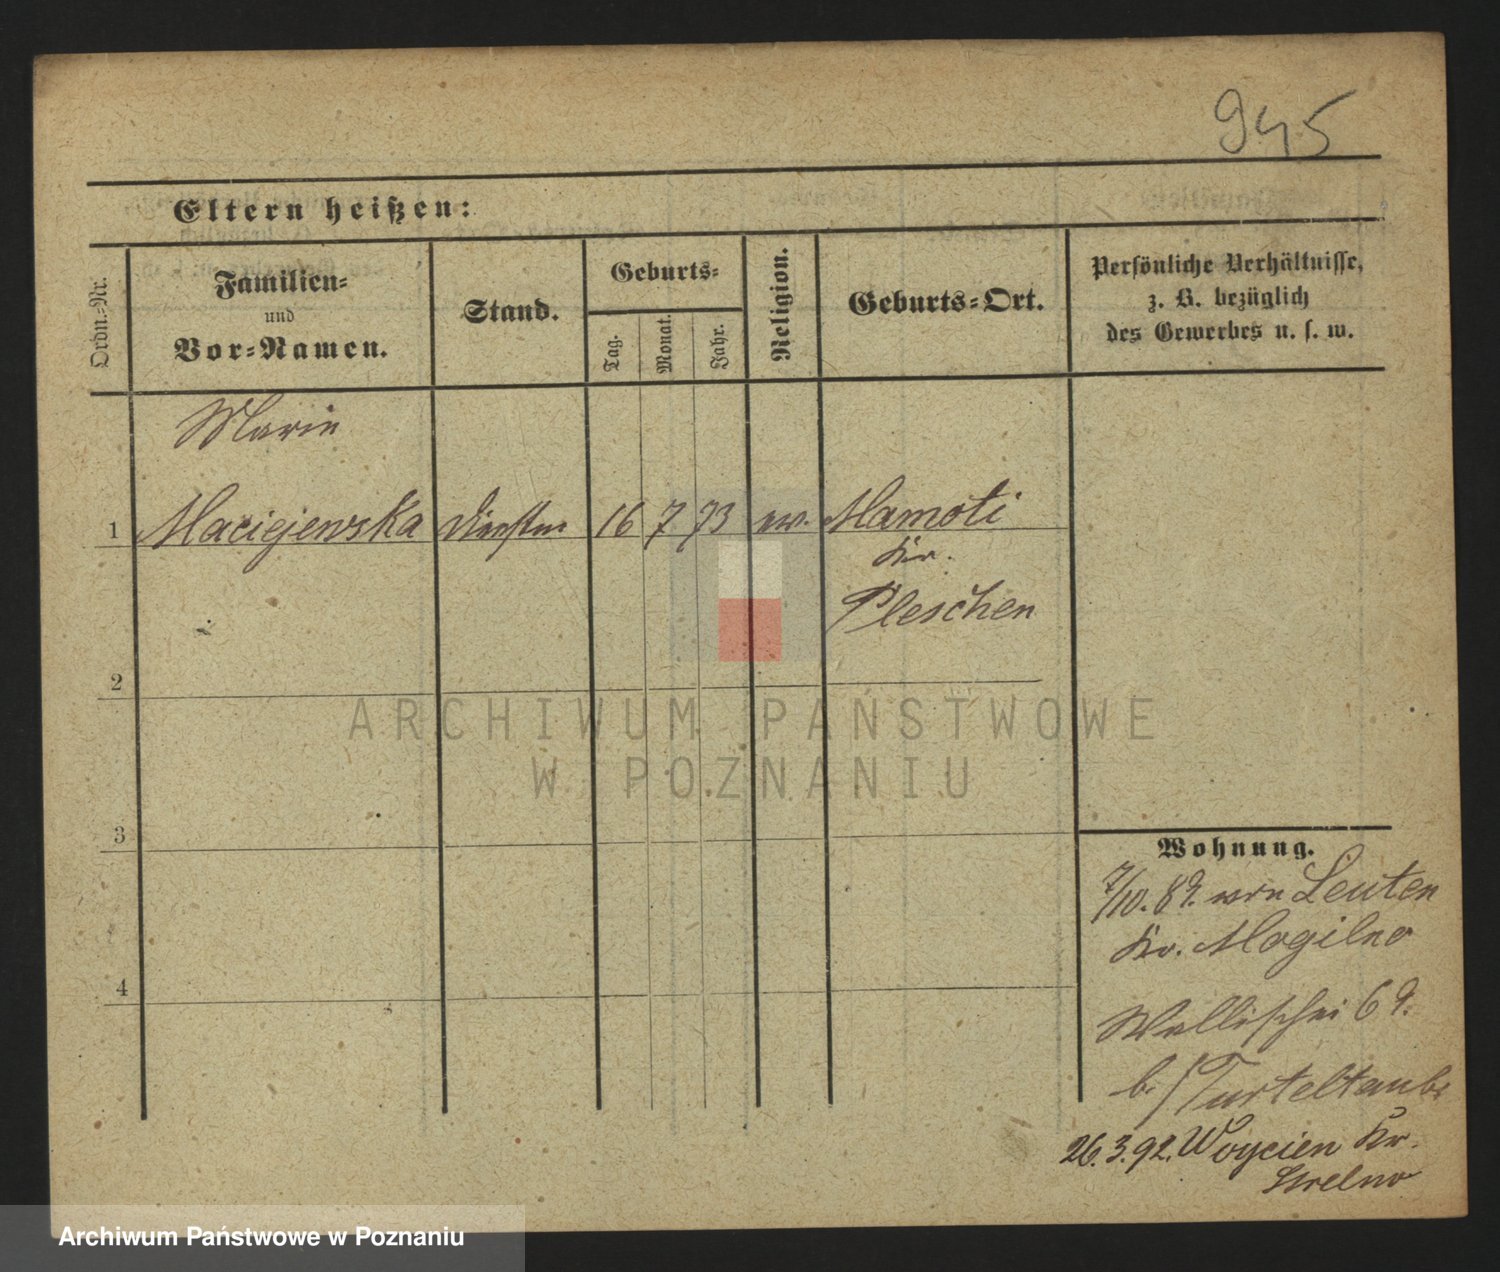 945
Eltern heißen:
Ordn.-Nr.
Familien-
und
Vor-Namen.
Stand.
Geburts-
Tag.
Monat.
Jahr.
Religion.
Geburts-Ort.
Persönliche Verhältnisse,
z. B. bezüglich
des Gewerbes u. s. w.
Marie
1 Maciejewska 16 7 73 ev. Mamoti
Kr.
Pleschen
2
3
4
Wohnung.
7/10. 89. von Leuten
Kr. Mogilno
Wallischei 69.
b/ Turteltaube
26.3.92. Woycien Kr.
Strelno
ARCHIWUM PAŃSTWOWE
W POZNANIU
Archiwum Państwowe w Poznaniu